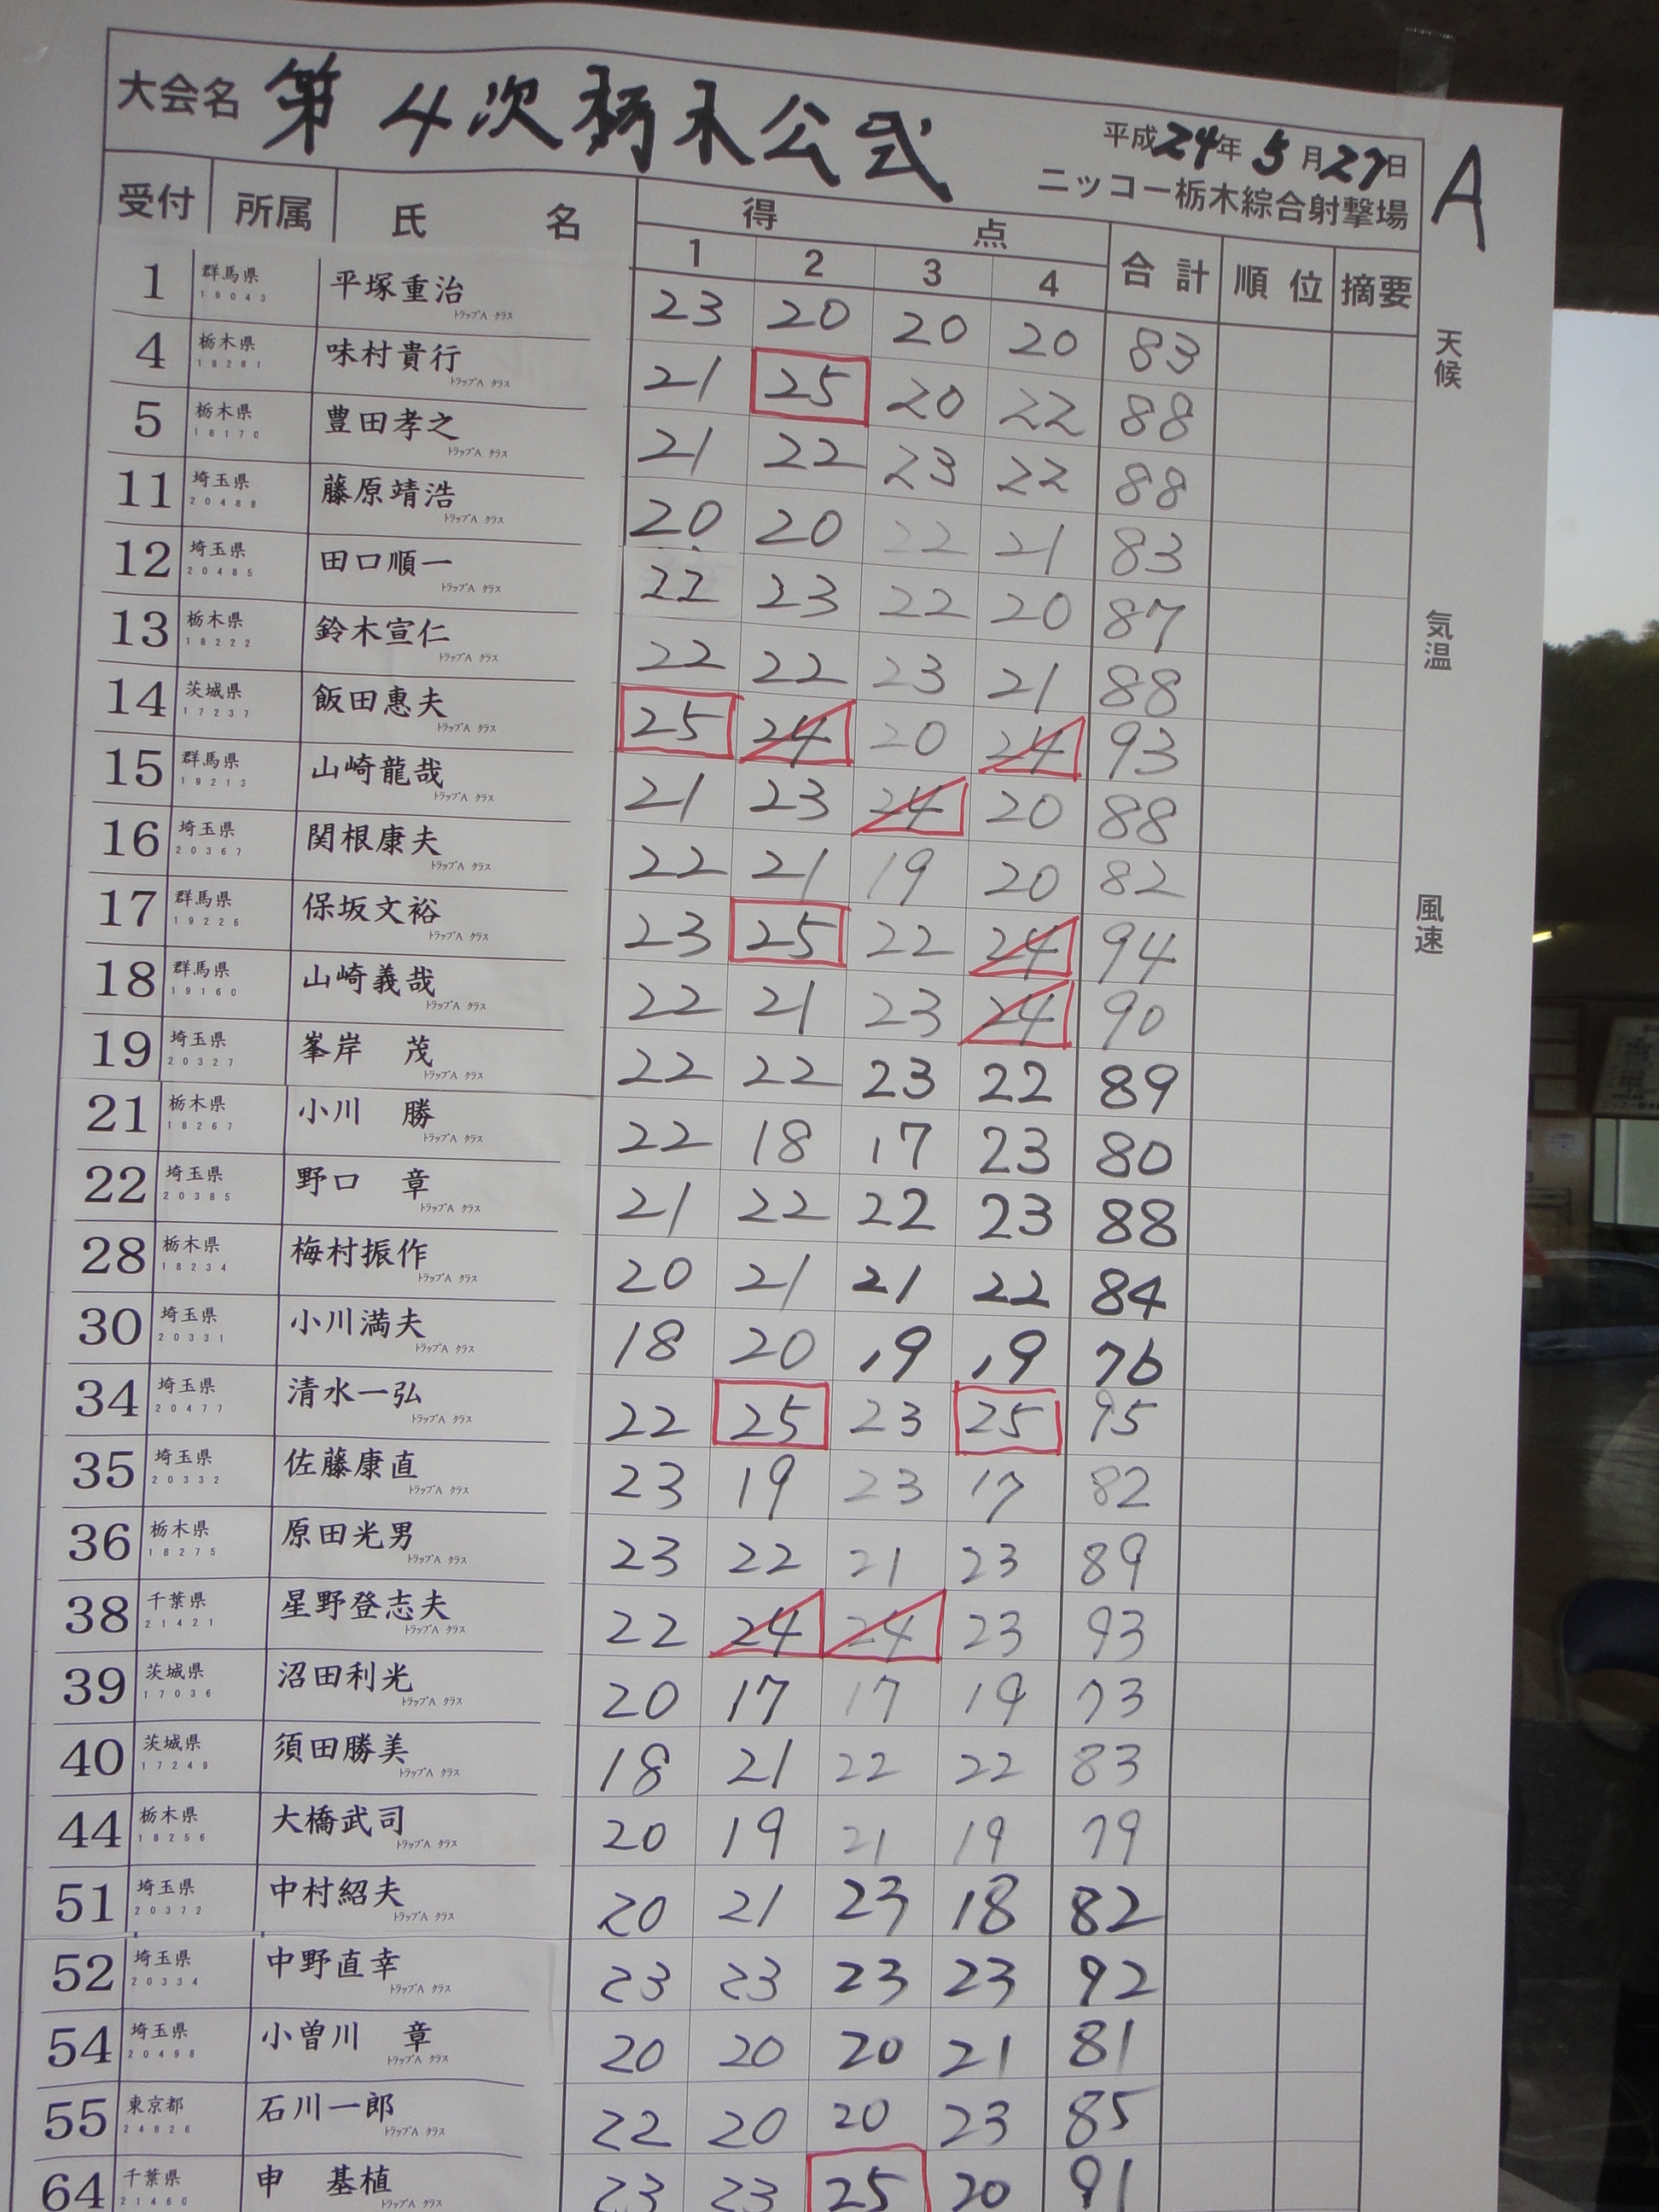 大会名 第4次栃木公式 平成24年5月27日 A
ニッコー栃木綜合射撃場
受付 所属 氏 名 得 点 合計 順位 摘要
1 2 3 4
1 群馬県 19043 平塚重治 トラップA クラス 23 20 20 20 83
4 栃木県 18281 味村貴行 トラップA クラス 21 25 20 22 88
5 栃木県 18170 豊田孝之 トラップA クラス 21 22 23 22 88
11 埼玉県 20488 藤原靖浩 トラップA クラス 20 20 22 21 83
12 埼玉県 20485 田口順一 トラップA クラス 22 23 22 20 87
13 栃木県 18222 鈴木宣仁 トラップA クラス 22 22 23 21 88
14 茨城県 17237 飯田惠夫 トラップA クラス 25 24 20 24 93
15 群馬県 19213 山崎龍哉 トラップA クラス 21 23 24 20 88
16 埼玉県 20367 関根康夫 トラップA クラス 22 21 19 20 82
17 群馬県 19226 保坂文裕 トラップA クラス 23 25 22 24 94
18 群馬県 19160 山崎義哉 トラップA クラス 22 21 23 24 90
19 埼玉県 20327 峯岸 茂 トラップA クラス 22 22 23 22 89
21 栃木県 18267 小川 勝 トラップA クラス 22 18 17 23 80
22 埼玉県 20385 野口 章 トラップA クラス 21 22 22 23 88
28 栃木県 18234 梅村振作 トラップA クラス 20 21 21 22 84
30 埼玉県 20331 小川満夫 トラップA クラス 18 20 19 19 76
34 埼玉県 20477 清水一弘 トラップA クラス 22 25 23 25 95
35 埼玉県 20332 佐藤康直 トラップA クラス 23 19 23 17 82
36 栃木県 18275 原田光男 トラップA クラス 23 22 21 23 89
38 千葉県 21421 星野登志夫 トラップA クラス 22 24 24 23 93
39 茨城県 17036 沼田利光 トラップA クラス 20 17 17 19 73
40 茨城県 17249 須田勝美 トラップA クラス 18 21 22 22 83
44 栃木県 18256 大橋武司 トラップA クラス 20 19 21 19 79
51 埼玉県 20372 中村紹夫 トラップA クラス 20 21 23 18 82
52 埼玉県 20334 中野直幸 トラップA クラス 23 23 23 23 92
54 埼玉県 20498 小曽川 章 トラップA クラス 20 20 20 21 81
55 東京都 24826 石川一郎 トラップA クラス 22 20 20 23 85
64 千葉県 21460 申 基植 トラップA クラス 23 23 25 20 91
天候
気温
風速